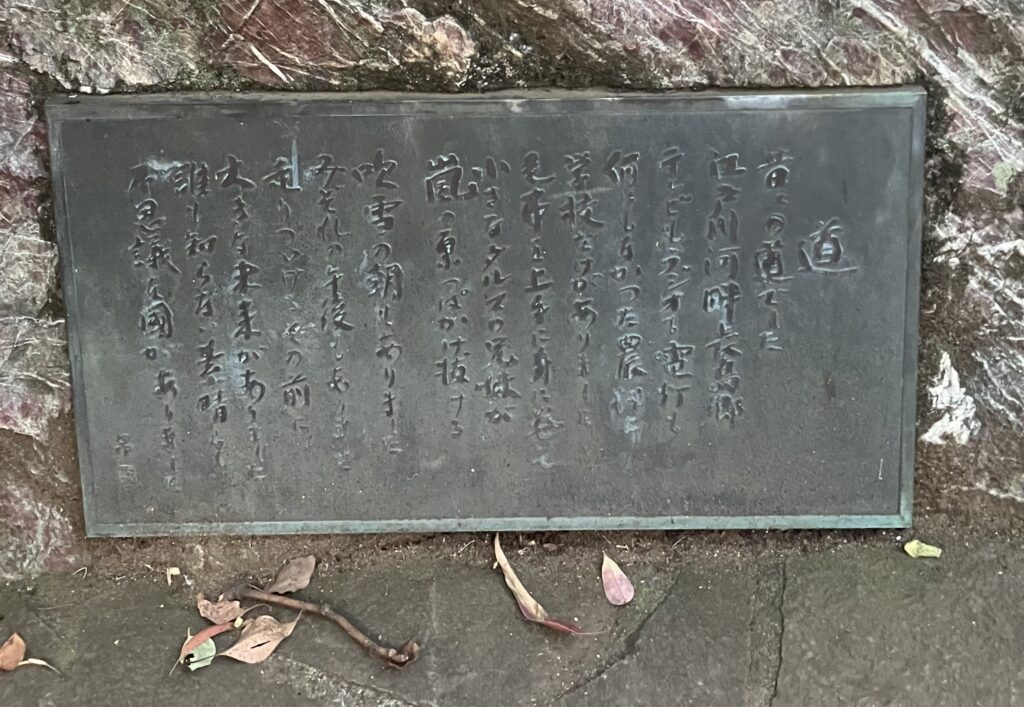 道
昔々の道でした
江戸川河畔
テレビもラジオも電灯も
何もなかった農
学校だけがありました
毛布を上手に身に巻いて
小さなダルマの兄妹が
嵐の原っぱかけ抜ける
吹雪の朝もありました
みぞれの午後もありました
走りつづけるその前に
大きな未来がありました
誰も知らない素晴しい
不思議な國がありました